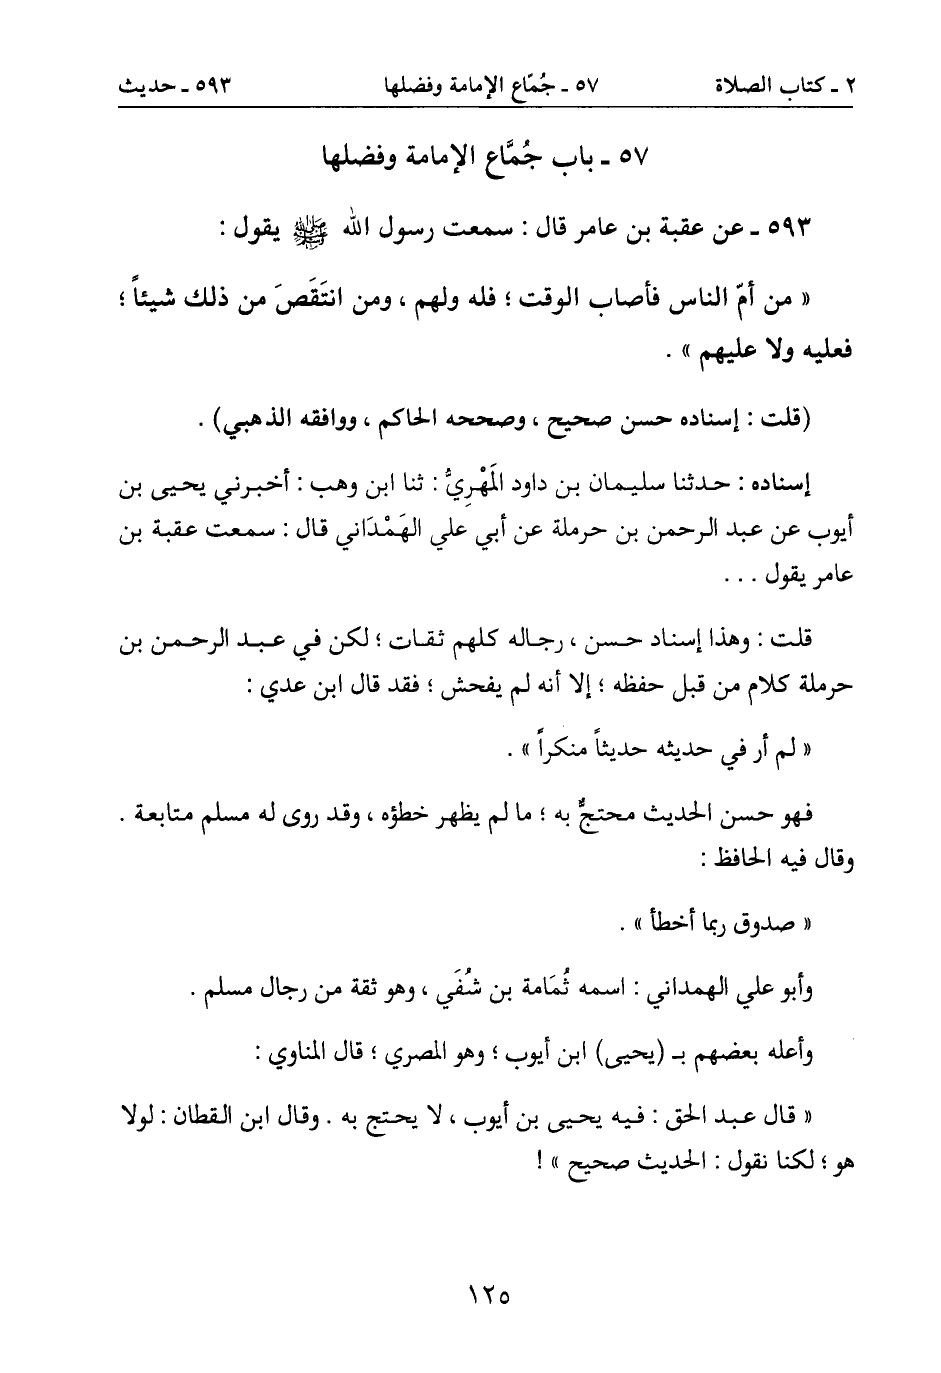 ٢ ـ كتاب الصلاة ٥٧ ـ جُمّاع الإمامة وفضلها ٥٩٣ ـ حديث
٥٧ ـ باب جُمَّاع الإمامة وفضلها
٥٩٣ ـ عن عقبة بن عامر قال : سمعت رسول الله ﷺ يقول :
« من أمّ الناس فأصاب الوقت ؛ فله ولهم ، ومن انتَقَصَ من ذلك شيئاً ؛
فعليه ولا عليهم » .
(قلت : إسناده حسن صحيح ، وصححه الحاكم ، ووافقه الذهبي) .
إسناده : حدثنا سليمان بن داود المَهْرِيُّ : ثنا ابن وهب : أخبرني يحيى بن
أيوب عن عبد الرحمن بن حرملة عن أبي علي الهَمْدَاني قال : سمعت عقبة بن
عامر يقول . . .
قلت : وهذا إسناد حسن ، رجاله كلهم ثقات ؛ لكن في عبد الرحمن بن
حرملة كلام من قبل حفظه ؛ إلا أنه لم يفحش ؛ فقد قال ابن عدي :
« لم أر في حديثه حديثاً منكراً » .
فهو حسن الحديث محتجٌّ به ؛ ما لم يظهر خطؤه ، وقد روى له مسلم متابعة .
وقال فيه الحافظ :
« صدوق ربما أخطأ » .
وأبو علي الهمداني : اسمه ثُمَامة بن شُفَي ، وهو ثقة من رجال مسلم .
وأعله بعضهم بـ (يحيى) ابن أيوب ؛ وهو المصري ؛ قال المناوي :
« قال عبد الحق : فيه يحيى بن أيوب ، لا يحتج به . وقال ابن القطان : لولا
هو ؛ لكنا نقول : الحديث صحيح » !
١٢٥